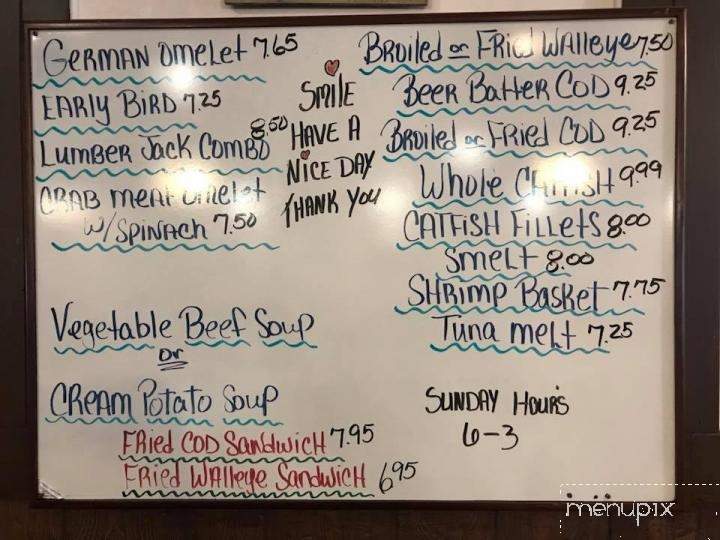 German Omelet 7.65
Early Bird 7.25
Lumber Jack Combo 8.50
Crab meat omelet
w/ Spinach 7.50
Smile
Have A
Nice Day
Thank You
Broiled or Fried Walleye 7.50
Beer Batter Cod 9.25
Broiled or Fried Cod 9.25
Whole Catfish 9.99
Catfish Fillets 8.00
Smelt 8.00
Shrimp Basket 7.75
Tuna melt 7.25
Vegetable Beef Soup
or
Cream Potato Soup
Fried Cod Sandwich 7.95
Fried Walleye Sandwich 6.95
Sunday Hours
6-3
menupix